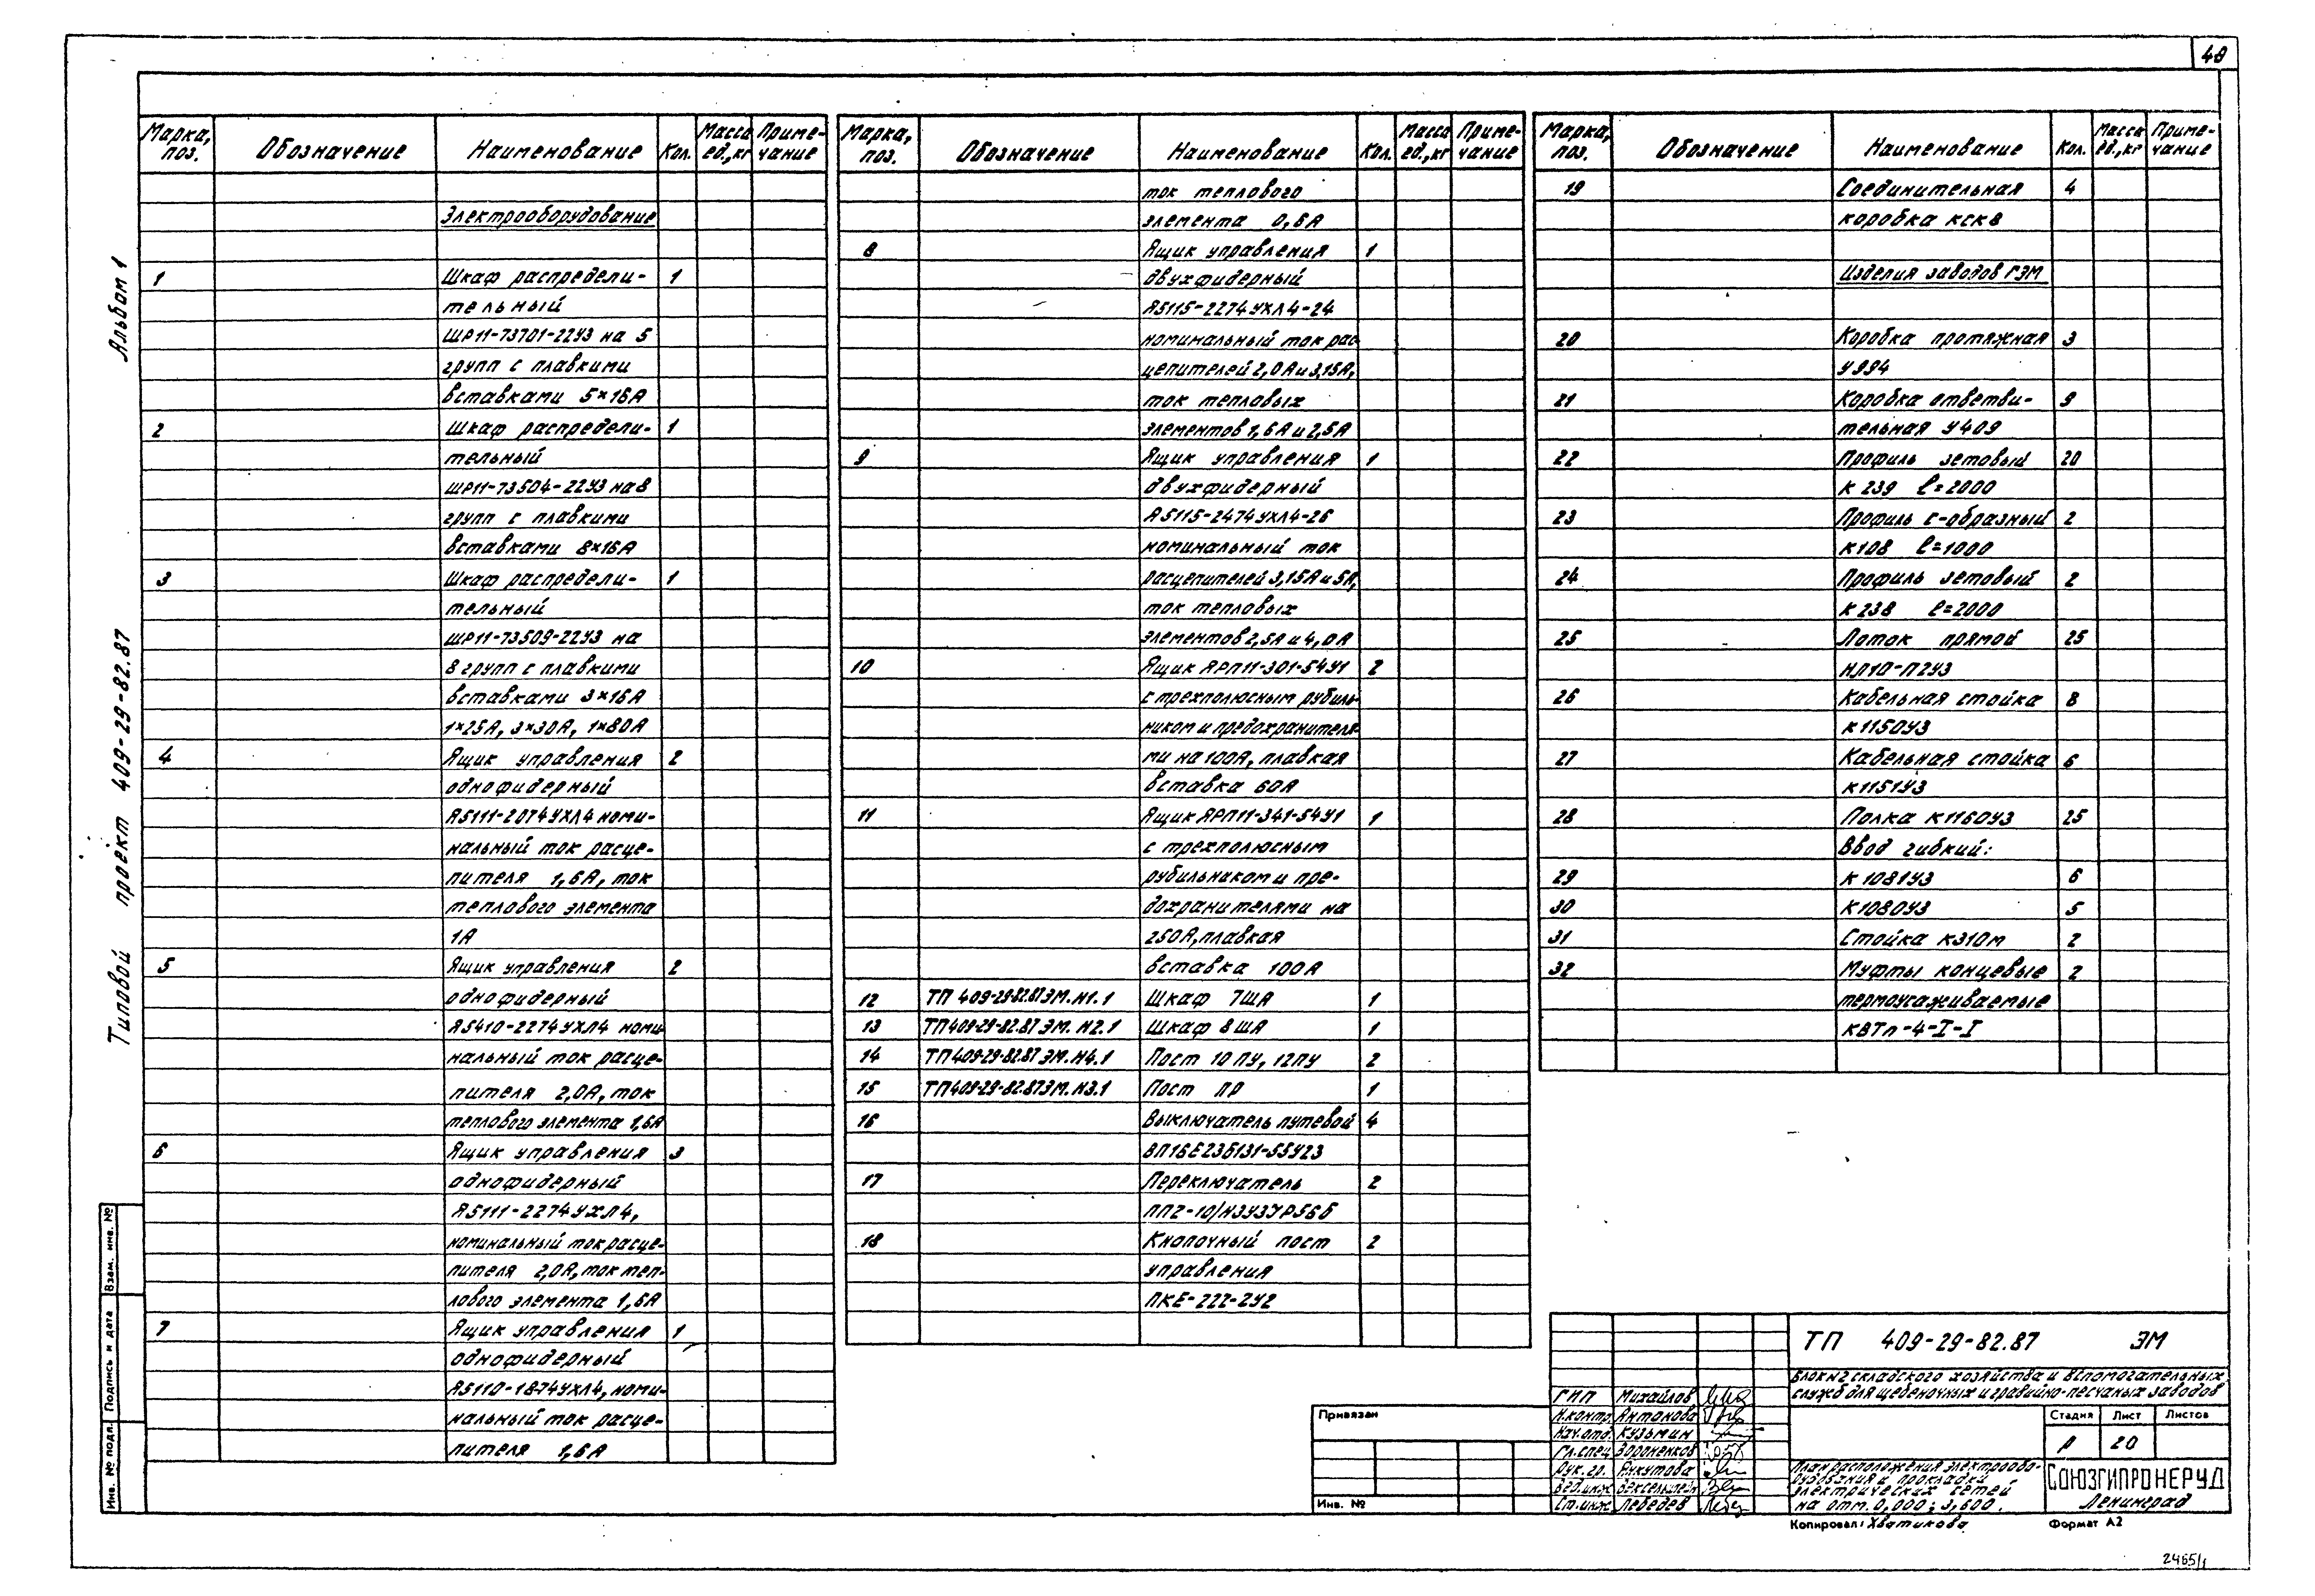 48
Альбом 1
Типовой проект 409-29-82.87
Марка, поз. Обозначение Наименование Кол. Масса ед., кг Приме-чание
Электрооборудование
1 Шкаф распредели- 1
тельный
ШР11-73701-22У3 на 5
групп с плавкими
вставками 5×16А
2 Шкаф распредели- 1
тельный
ШР11-73504-22У3 на 8
групп с плавкими
вставками 8×16А
3 Шкаф распредели- 1
тельный
ШР11-73509-22У3 на
8 групп с плавкими
вставками 3×16А
1×25А, 3×30А, 1×80А
4 Ящик управления 2
однофидерный
Я5111-2074УХЛ4 номи-
нальный ток расце-
пителя 1,6А, ток
теплового элемента
1А
5 Ящик управления 2
однофидерный
Я5410-2274УХЛ4 номи-
нальный ток расце-
пителя 2,0А, ток
теплового элемента 1,6А
6 Ящик управления 3
однофидерный
Я5111-2274УХЛ4,
номинальный ток расце-
пителя 2,0А, ток теп-
лового элемента 1,6А
7 Ящик управления 1
однофидерный
Я5110-1874УХЛ4, номи-
нальный ток расце-
пителя 1,6А
Марка, поз. Обозначение Наименование Кол. Масса ед., кг Приме-чание
ток теплового
элемента 0,6А
8 Ящик управления 1
двухфидерный
Я5115-2274УХЛ4-24
номинальный ток рас
цепителей 2,0А и 3,15А,
ток тепловых
элементов 1,6А и 2,5А
9 Ящик управления 1
двухфидерный
Я5115-2474УХЛ4-26
номинальный ток
расцепителей 3,15А и 5А,
ток тепловых
элементов 2,5А и 4,0А
10 Ящик ЯРП11-301-54У1 2
с трехполюсным рубиль-
ником и предохранителя-
ми на 100А, плавкая
вставка 60А
11 Ящик ЯРП11-341-54У1 1
с трехполюсным
рубильником и пре-
дохранителями на
250А, плавкая
вставка 100А
12 ТП 409-29-82.87 ЭМ.Н1.1 Шкаф 7ША 1
13 ТП 409-29-82.87 ЭМ.Н2.1 Шкаф 8ША 1
14 ТП 409-29-82.87 ЭМ.Н4.1 Пост 10ПУ, 12ПУ 2
15 ТП 409-29-82.87 ЭМ.Н3.1 Пост ПР 1
16 Выключатель путевой 4
ВП16Е23Б131-55У23
17 Переключатель 2
ПП2-10/Н3У3УР56Б
18 Кнопочный пост 2
управления
ПКЕ-222-2У2
Марка, поз. Обозначение Наименование Кол. Масса ед., кг Приме-чание
19 Соединительная 4
коробка КСК8
Изделия заводов ГЭМ
20 Коробка протяжная 3
У994
21 Коробка ответви- 9
тельная У409
22 Профиль зетовый 20
К239 ℓ=2000
23 Профиль С-образный 2
К108 ℓ=1000
24 Профиль зетовый 2
К238 ℓ=2000
25 Лоток прямой 25
НЛ10-П2У3
26 Кабельная стойка 8
К1150У3
27 Кабельная стойка 6
К1151У3
28 Полка К1160У3 25
Ввод гибкий:
29 К1081У3 6
30 К1080У3 5
31 Стойка К310М 2
32 Муфты концевые 2
термоусаживаемые
КВТп-4-I-I
ТП 409-29-82.87 ЭМ
Блок №2 складского хозяйства и вспомогательных
служб для щебеночных и гравийно-песчаных заводов
ГИП Михайлов
Н.контр. Антонова
Нач.отд. Кузьмин
Гл.спец. Вороненков
Рук. гр. Янкутова
Вед.инж.
Ст.инж. Лебедев
Стадия Лист Листов
Р 20
План расположения электрообо-
рудования и прокладки
электрических сетей
на отм. 0,000; 3,600.
СОЮЗГИПРОНЕРУД
Ленинград
Привязан
Инв. №
Копировал: Хватикова Формат А2
Взам. инв. №
Подпись и дата
Инв. № подл.
2465/1